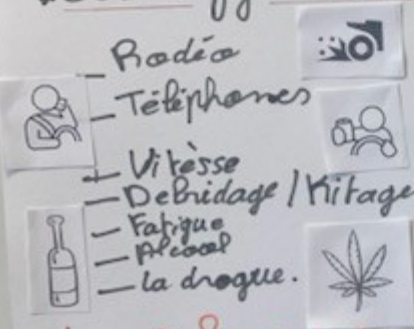 - Radio
- Téléphones
- Vitèsse
- Debridage / Kitage
- Fatigue
- Alcool
- La drogue.